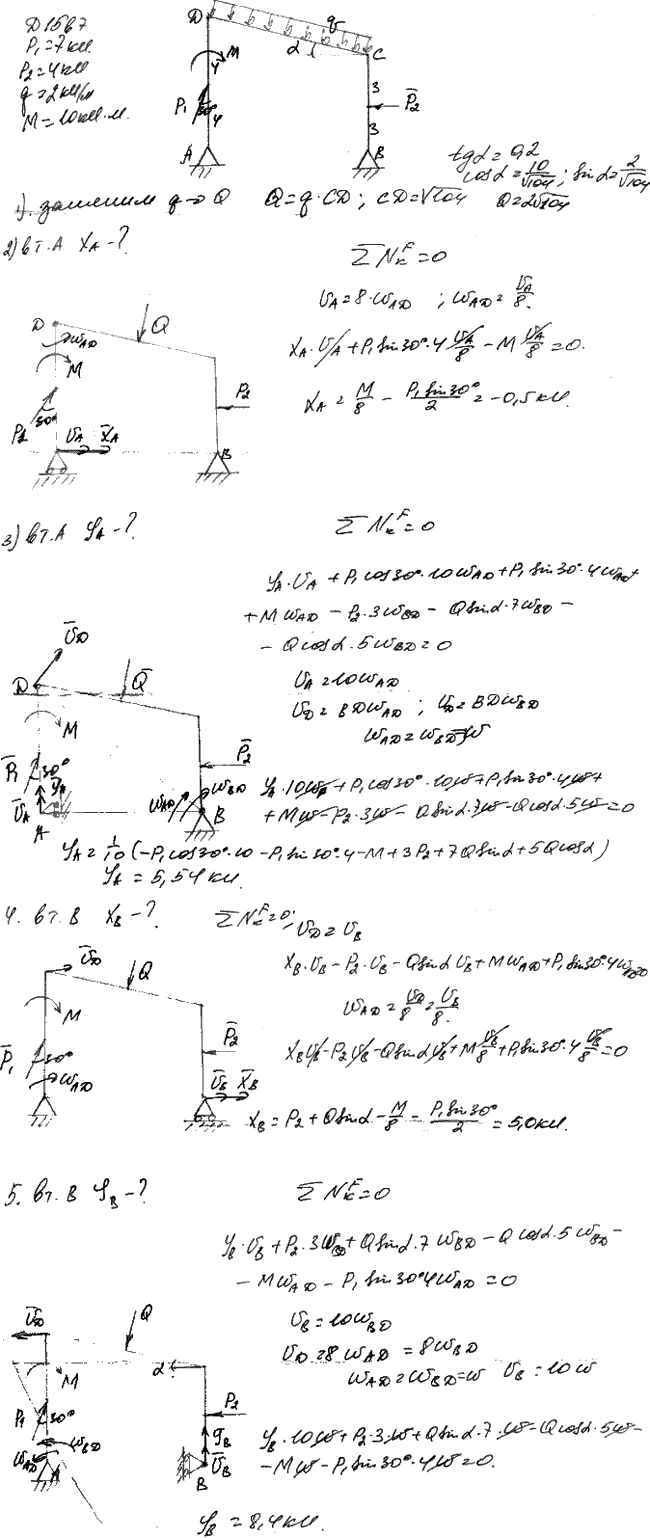 Д1567
P₁=7кН
P₂=4кН
q=2кН/м
M=10кН·м.
D q
M α l C
4 3
P₁ 30° 4 P̄₂
3
A B
tgα=0,2
cosα=10/√104; sinα=2/√104
1). заменим q→Q Q=q·CD; CD=√104 Q=2√104
2) в т.А X_A-?
ΣN_k^F=0
V_A=8·ω_AD ; ω_AD=V_A/8.
X_A·V_A+P₁sin30°·4 V_A/8 - M V_A/8=0.
X_A = M/8 - P₁sin30°/2 = -0,5кН.
D Q
ω_AD
M
P₁ 30° P₂
V̄_A X̄_A B
3) в т.А Y_A-?
ΣN_k^F=0
Y_A·V_A + P₁cos30°·10ω_AD+P₁sin30°·4ω_AD+
+Mω_AD - P₂·3ω_BD - Qsinα·7ω_BD -
- Qcosα·5ω_BD=0
V_A=10ω_AD
V_D=BDω_AD ; V_D=BDω_BD
ω_AD=ω_BD=ω
V̄_D
D Q̄
M
P̄₁ 30° P̄₂
Ȳ_A ω_AD ω_BD
V̄_A
A B
Y_A·10ω+P₁cos30°·10ω+P₁sin30°·4ω+
+Mω-P₂·3ω-Qsinα·7ω-Qcosα·5ω=0
Y_A=1/10(-P₁cos30°·10-P₁sin30°·4-M+3P₂+7Qsinα+5Qcosα)
Y_A = 5,54кН.
4. в т.В X_B-? ΣN_k^F=0; V_D=V_B
X_B·V_B-P₂·V_B-Qsinα V_B+Mω_AD+P₁sin30°4ω_AD=0
ω_AD=V_D/8=V_B/8.
X_B V_B-P₂V_B-Qsinα V_B+M V_B/8+P₁sin30°·4 V_B/8=0
X_B=P₂+Qsinα-M/8-P₁sin30°/2=5,0кН.
V̄_D Q
M
P̄₁ 30° P̄₂
ω_AD V̄_B X̄_B
5. в т.В Y_B-? ΣN_k^F=0
Y_B·V_B+P₂·3ω_BD+Qsinα·7ω_BD-Qcosα·5ω_BD-
-Mω_AD-P₁sin30°4ω_AD=0
V_B=10ω_BD
V_D=8ω_AD=8ω_BD
ω_AD=ω_BD=ω V_B=10ω
V̄_D Q
M α
P₁ 30° P₂
ω_AD ω_BD Ȳ_B
A V̄_B
B
Y_B·10ω+P₂·3ω+Qsinα·7·ω-Qcosα·5ω-
-Mω-P₁sin30°·4ω=0.
Y_B=8,4кН.